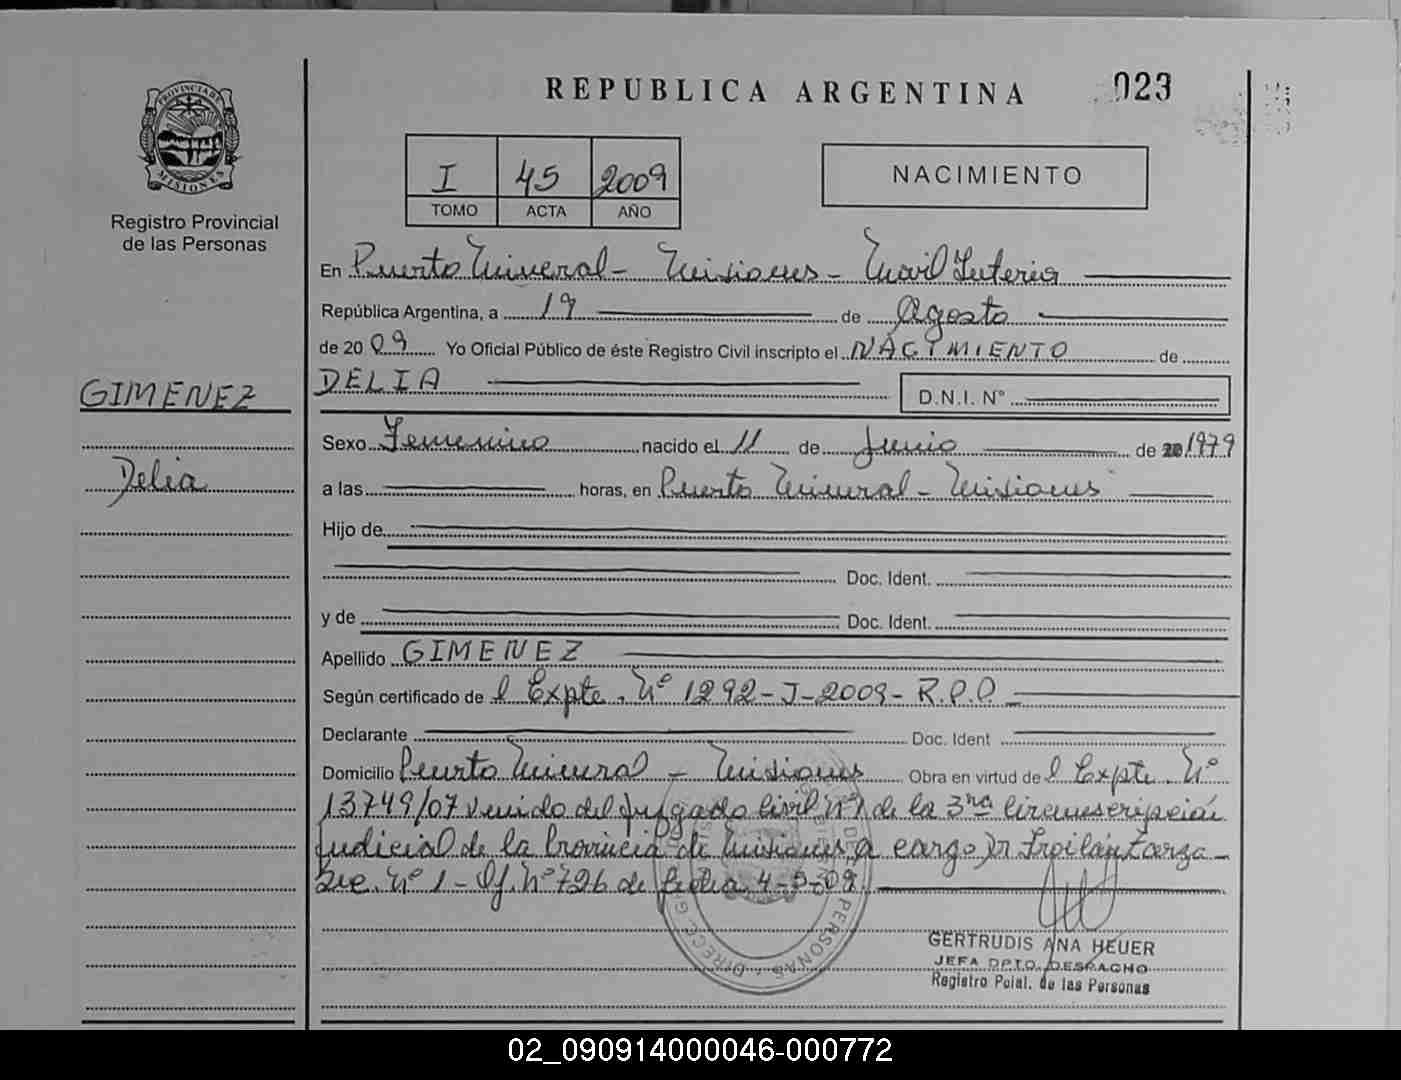 REPUBLICA ARGENTINA
023
PROVINCIA DE MISIONES
Registro Provincial
de las Personas
I 45 2009
TOMO ACTA AÑO
NACIMIENTO
En Puerto Mineral - Misiones - Movil Interior
República Argentina, a 19 de Agosto
de 2009 Yo Oficial Público de éste Registro Civil inscripto el NACIMIENTO de
GIMENEZ
DELIA
D.N.I. N°
Sexo Femenino nacido el 11 de Junio de 20 1979
Delia
a las horas, en Puerto Mineral - Misiones
Hijo de
Doc. Ident.
y de Doc. Ident.
Apellido GIMENEZ
Según certificado de l Expte. Nº 1292-J-2009- R.P.P.
Declarante Doc. Ident
Domicilio Puerto Mineral - Misiones Obra en virtud de l Expte. Nº
13749/07 venido del Juzgado Civil Nº1 de la 3ra Circunscripción
Judicial de la Provincia de Misiones, a cargo Dr
Sec. Nº 1 - Of. Nº 726 de fecha 4-5-09
GERTRUDIS ANA HEUER
JEFA DPTO. DESPACHO
Registro Pcial. de las Personas
02_090914000046-000772